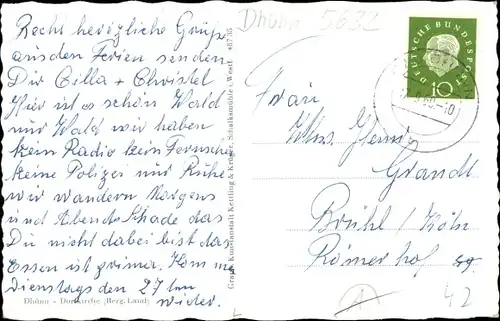 Recht herzliche Grüße
aus den Ferien senden
Dir Cilla + Christel
Hier ist es schön Wald
und Wald wir haben
kein Radio kein Fernseh
keine Polizei nur Ruhe
wir wandern Morgens
und Abends Schade das
Du nicht dabei bist das
Essen ist prima. Komme
Dienstags den 27
wieder.
Dhünn - Dorfkirche (Berg. Land)
Graph. Kunstanstalt Kettling & Krüger, Schalksmühle i. Westf. 487/35
Dhünn 5632
DEUTSCHE BUNDESPOST
10
Frau
Wwe.
Brühl / Köln
Römerhof
42